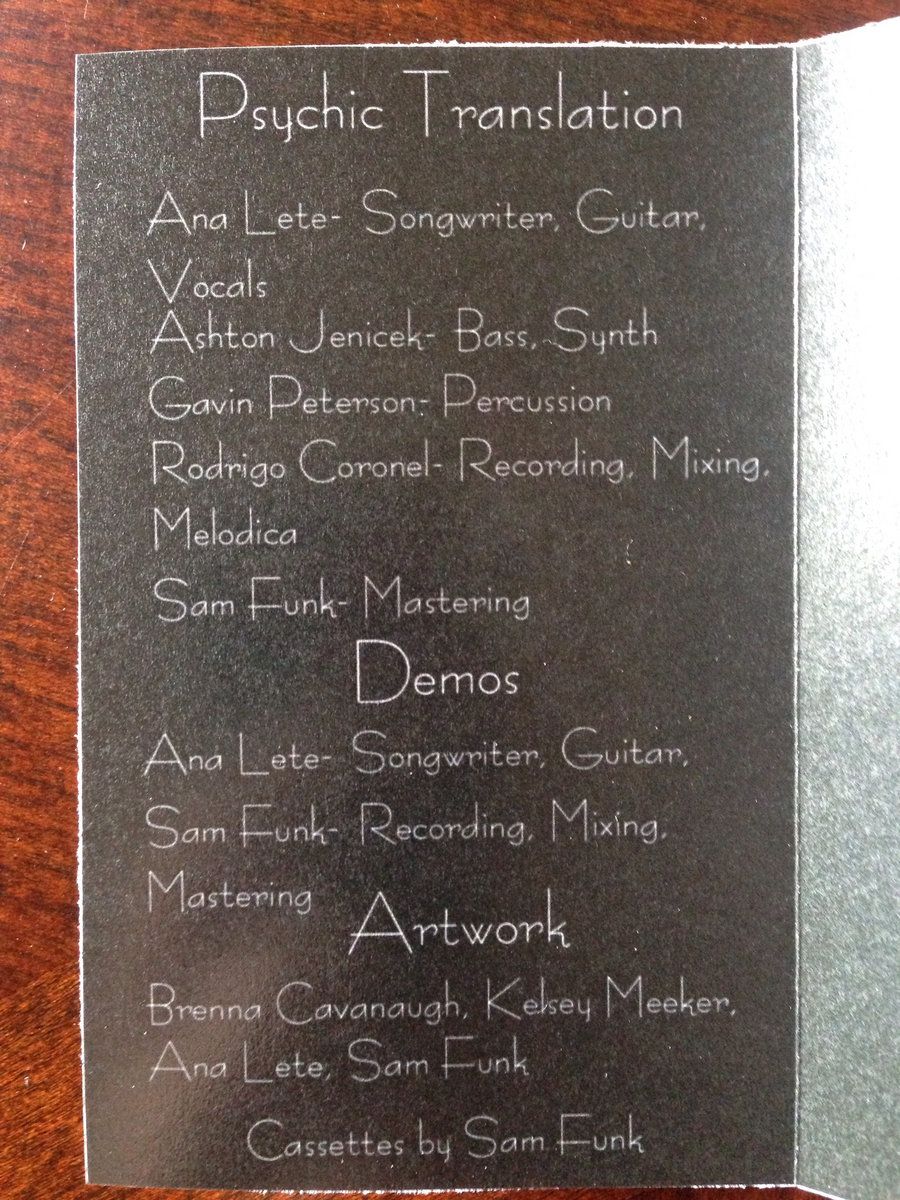 Psychic Translation
Ana Lete- Songwriter, Guitar,
Vocals
Ashton Jenicek- Bass, Synth
Gavin Peterson- Percussion
Rodrigo Coronel- Recording, Mixing,
Melodica
Sam Funk- Mastering
Demos
Ana Lete- Songwriter, Guitar,
Sam Funk- Recording, Mixing,
Mastering
Artwork
Brenna Cavanaugh, Kelsey Meeker,
Ana Lete, Sam Funk
Cassettes by Sam Funk